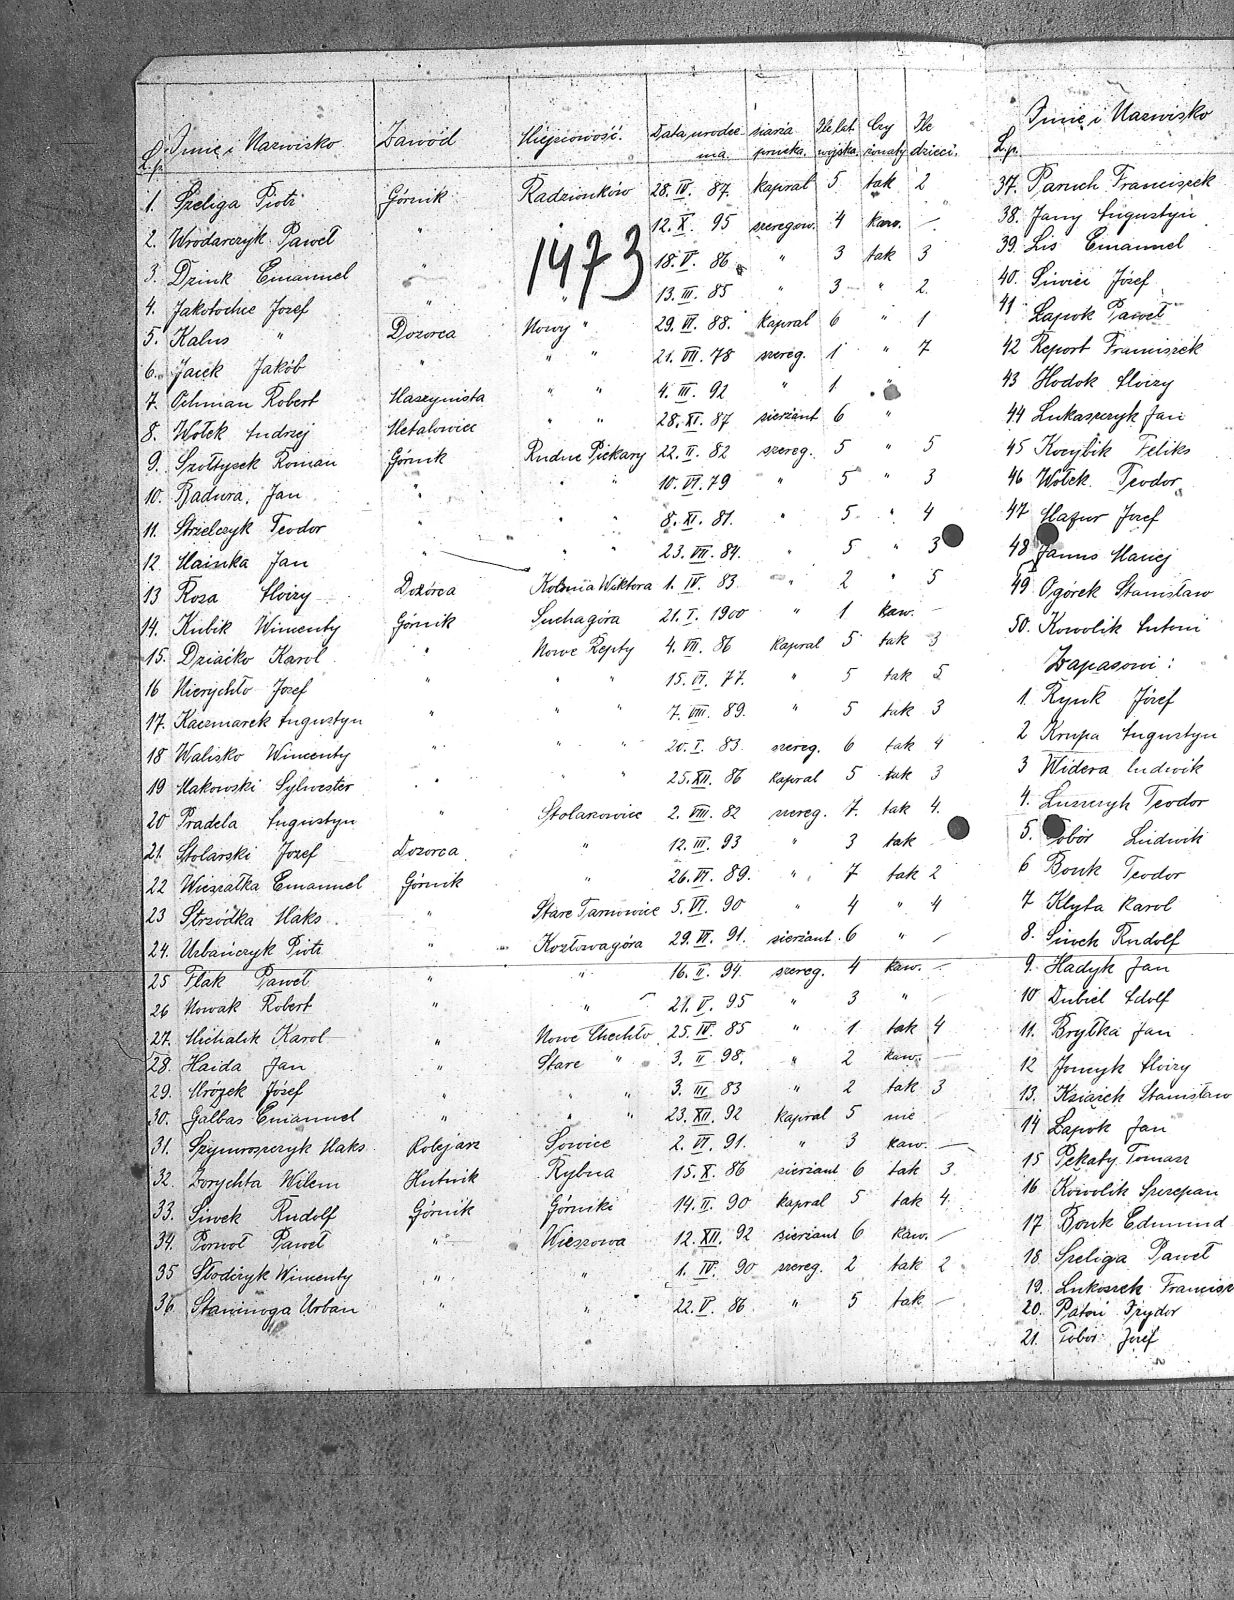 L.p. Imię i Nazwisko Zawód Miejscowość. Data urodzenia. Ile lat wojska. Czy żonaty Ile dzieci.
1. Szeliga Piotr Górnik Radzionków 28. IV. 87. kapral 5 tak 2
2. Włodarczyk Paweł " 12. X. 95 szeregow. 4 kaw. —
3. Dzink Emanuel " 18. V. 86 " 3 tak 3
1473
4. Józef " 13. III. 85 " 3 " 2
5. Kalus " Dozorca Nowy " 29. VI. 88. kapral 6 " 1
6. Jacek Jakób " " " 21. VII. 78 szereg. 1 " 7
7. Ochman Robert Maszynista " " 4. III. 92 " 1 "
8. Wołek Andrzej Metalowiec " " 28. XI. 87 sierżant 6 "
9. Szołtysek Roman Górnik Rudne Piekary 22. II. 82 szereg. 5 " 5
10. Badura Jan " " " 10. VI. 79 " 5 " 3
11. Strzelczyk Teodor " " " 8. XI. 81. " 5 " 4
12 Hainka Jan " " " 23. VII. 84. " 5 " 3
13 Roza Aloizy Dozórca Kolonia Wiktora 1. IV. 83. " 2 " 5
14. Kubik Wincenty Górnik Suchagóra 21. I. 1900 " 1 kaw. —
15. Dziaćko Karol " Nowe Repty 4. VII. 86 kapral 5 tak 3
16 Nierychło Jozef " " " 15. VI. 77. " 5 tak 5
17. Kaczmarek Augustyn " " " 7. VIII. 89. " 5 tak 3
18 Walisko Wincenty " " " 20. I. 83. szereg. 6 tak 4
19 Makowski Sylwester " " " 25. XII. 86 kapral 5 tak 3
20 Pradela Augustyn " Stolarowice 2. VIII. 82 szereg. 7. tak 4.
21. Stolarski Jozef Dozorca " 12. III. 93 " 3 tak
22 Emanuel Górnik " 26. VI. 89. " 7 tak 2
23 Strzódka Maks " Stare Tarnowice 5. VI. 90 " 4 " 4
24. Urbańczyk Piotr " Kozłowagóra 29. VI. 91. sierżant 6 " —
25 Flak Paweł " " 16. II. 94. szereg. 4 kaw. —
26 Nowak Robert " " 21. V. 95 " 3 " —
27. Michalik Karol " Nowe Chechło 25. IV. 85 " 1 tak 4
28. Haida Jan " Stare " 3. II. 98. " 2 kaw. —
29. Mrózek Józef " " " 3. III. 83 " 2 tak 3
30. Galbas Emanuel " " " 23. XII. 92 kapral 5 nie —
31. Maks Kolejarz Sowice 2. VI. 91. " 3 kaw. —
32. Zorychta Wilem Hutnik Rybna 15. X. 86 sierżant 6 tak 3.
33. Siwek Rudolf Górnik Górniki 14. II. 90 kapral 5 tak 4.
34. Paweł " Wieszowa 12. XII. 92 sierżant 6 kaw. —
35 Słodczyk Wincenty " " 1. IV. 90 szereg. 2 tak 2
36. Stawinoga Urban " " 22. V. 86 " 5 tak —
L.p. Imię i Nazwisko
37. Paruch Franciszek
38. Jany Augustyn
39. Lis Emanuel
40. Józef
41 Łapok Paweł
42 Report Franciszek
43 Hodok Aloizy
44 Lukaszczyk Jan
45 Kocybik Feliks
46 Wołek Teodor
47 Mazur Jozef
48 Janus Maciej
49 Ogórek Stanisław
50. Kowolik Antoni
Zapasowi :
1. Rynk Józef
2 Krupa Augustyn
3 Widera Ludwik
4. Luszczyk Teodor
5. Tobór Ludwik
6 Bonk Teodor
7 Klyta Karol
8. Siwek Rudolf
9. Hadyk Jan
10 Dubiel Adolf
11. Bryłka Jan
12 Jonczyk Aloizy
13. Książek Stanisław
14 Łapok Jan
15 Pękaty Tomasz
16 Kowolik Szczepan
17 Bonk Edmund
18 Szeliga Paweł
19. Lukoszek Francisz
20. Patoń Frydor
21. Tobór Józef